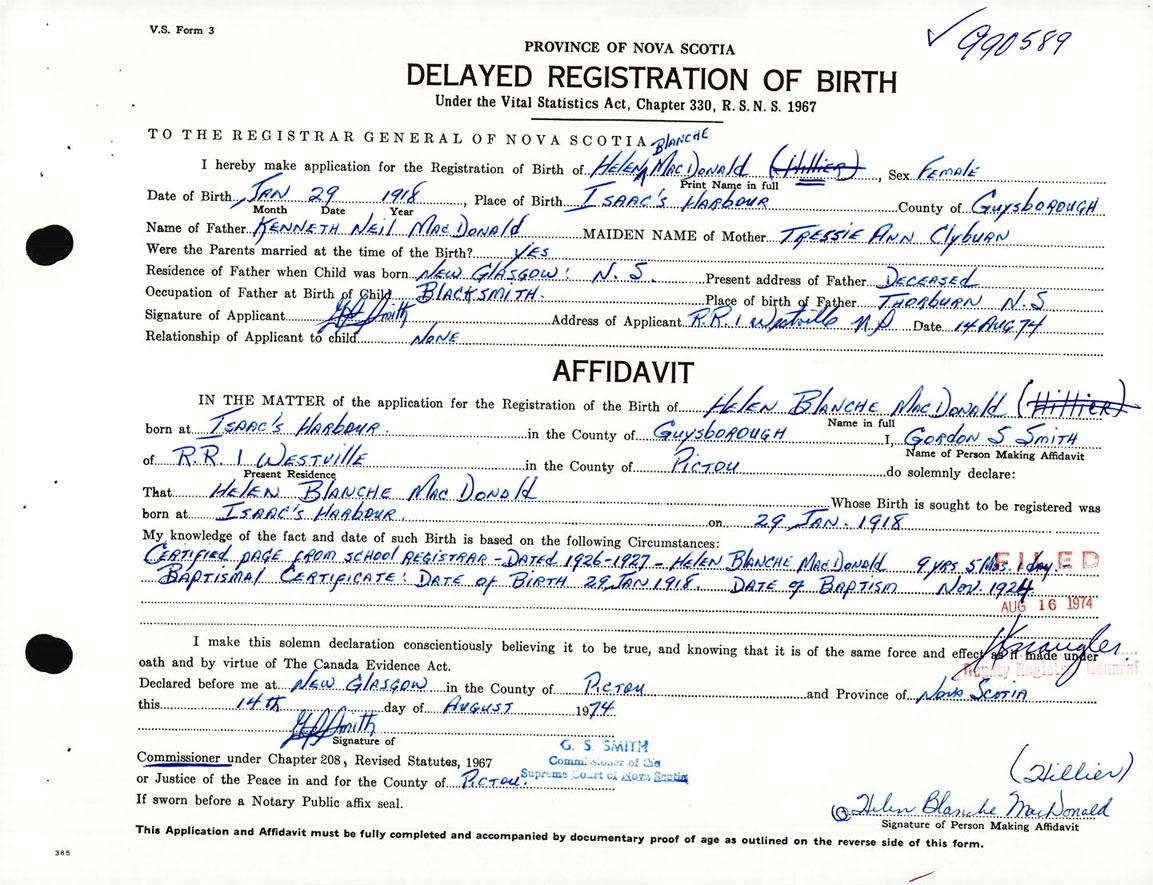 V.S. Form 3
990589
PROVINCE OF NOVA SCOTIA
DELAYED REGISTRATION OF BIRTH
Under the Vital Statistics Act, Chapter 330, R.S.N.S. 1967
TO THE REGISTRAR GENERAL OF NOVA SCOTIA
BLANCHE
I hereby make application for the Registration of Birth of HELEN MACDONALD (HILLIER), Sex FEMALE
Print Name in full
Date of Birth JAN 29 1918, Place of Birth ISAAC'S HARBOUR County of GUYSBOROUGH
Month Date Year
Name of Father KENNETH NEIL MACDONALD MAIDEN NAME of Mother TRESSIE ANN CLYBURN
Were the Parents married at the time of the Birth? YES
Residence of Father when Child was born NEW GLASGOW: N.S. Present address of Father DECEASED
Occupation of Father at Birth of Child BLACKSMITH. Place of birth of Father THORBURN N.S
Signature of Applicant GS Smith Address of Applicant R.R.1 Westville N.S Date 14 AUG 74
Relationship of Applicant to child NONE
AFFIDAVIT
IN THE MATTER of the application for the Registration of the Birth of HELEN BLANCHE MACDONALD (HILLIER)
Name in full
born at ISAAC'S HARBOUR. in the County of GUYSBOROUGH I, GORDON S SMITH
Name of Person Making Affidavit
of R.R. 1 WESTVILLE in the County of PICTOU do solemnly declare:
Present Residence
That HELEN BLANCHE MACDONALD Whose Birth is sought to be registered was
born at ISAAC'S HARBOUR. on 29 JAN. 1918
My knowledge of the fact and date of such Birth is based on the following Circumstances:
CERTIFIED PAGE FROM SCHOOL REGISTRAR - DATED 1926-1927 - HELEN BLANCHE MACDONALD 9 YRS 5 MOS. 1 day. -
FILED
BAPTISMAL CERTIFICATE: DATE OF BIRTH 29 JAN 1918. DATE OF BAPTISM NOV. 1924
AUG 16 1974
I make this solemn declaration conscientiously believing it to be true, and knowing that it is of the same force and effect as if made under
oath and by virtue of The Canada Evidence Act.
Deputy Registrar General
Declared before me at NEW GLASGOW in the County of PICTOU and Province of NOVA SCOTIA
this 14th day of AUGUST 1974
GS Smith
Signature of
G. S. SMITH
Commissioner of the
Supreme Court of Nova Scotia
Commissioner under Chapter 208, Revised Statutes, 1967
or Justice of the Peace in and for the County of PICTOU.
If sworn before a Notary Public affix seal.
(Hillier)
Helen Blanche MacDonald
Signature of Person Making Affidavit
This Application and Affidavit must be fully completed and accompanied by documentary proof of age as outlined on the reverse side of this form.
385